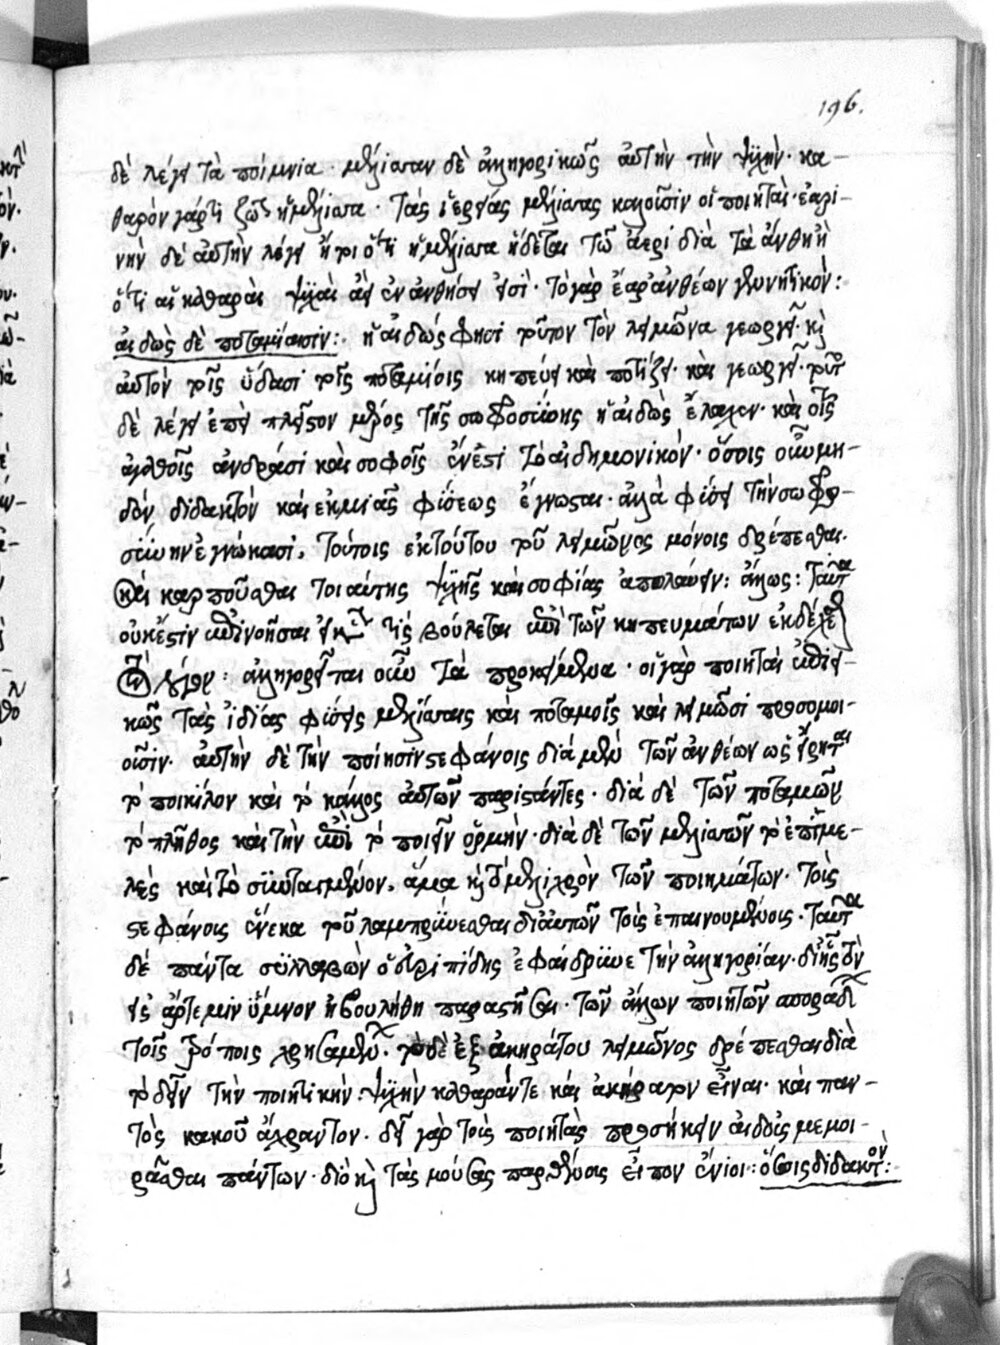 196.
δὲ λέγει τὰ ποίμνια · μέλισσαν δὲ ἀλληγορικῶς αὐτὴν τὴν ψυχὴν · κα-
θαρὸν γάρ τι ζῶον ἡ μέλισσα · τὰς ἱερείας μελίσσας καλοῦσιν οἱ ποιηταὶ · ἐαρι-
νὴν δὲ αὐτὴν λέγει ἤτοι ὅτι ἡ μέλισσα ἥδεται τῷ ἔαρι διὰ τὰ ἄνθη ἢ
ὅτι αἱ καθαραὶ ψυχαὶ ἀεὶ ἐν ἄνθησιν εἰσὶ · τὸ γὰρ ἔαρ ἀνθέων γεννητικόν :
αἰδὼς δὲ ποταμίαισιν : ἡ αἰδώς φησι τοῦτον τὸν λειμῶνα γεωργεῖ · καὶ
αὐτὸν τοῖς ὕδασι τοῖς ποταμίοις κηπεύει καὶ ποτίζει · καὶ γεωργεῖ · τοῦτο
δὲ λέγει ἐπεὶ πλεῖστον μέρος τῆς σωφροσύνης ἡ αἰδὼς ἔλαχεν · καὶ τοῖς
ἀγαθοῖς ἀνδράσι καὶ σοφοῖς ἔνεστι τὸ αἰδημονικόν · ὅσοις οὖν μη-
δὲν διδακτὸν καὶ ἐκ μιᾶς φύσεως ἔγνωσται · ἀλλὰ φύσει τὴν σωφρο-
σύνην ἐγνώκασι, τούτοις ἐκ τούτου τοῦ λειμῶνος μόνοις δρέπεσθαι.
καὶ καρποῦσθαι τοιαύτης ψυχῆς καὶ σοφίας ἀπολαύειν : ἄλλως : ταῦτα
οὐκ ἔστιν ἐπινοῆσαι εἰ μή τις βούλεται ἐπὶ τῶν κηπευμάτων ἐκδέχε
λόγον : ἀλληγορεῖται οὖν τὰ προκείμενα · οἱ γὰρ ποιηταὶ
κῶς τὰς ἰδίας φύσεις μελίσσαις καὶ ποταμοῖς καὶ λειμῶσι προσομοι-
οῦσιν · αὐτὴν δὲ τὴν ποίησιν στεφάνοις διὰ μὲν τῶν ἀνθέων ὡς εἴρηται
τὸ ποικίλον καὶ τὸ κάλλος αὐτῶν παριστάντες · διὰ δὲ τῶν ποταμῶν
τὸ πλῆθος καὶ τὴν ἐπὶ τὸ ποιεῖν ὁρμὴν · διὰ δὲ τῶν μελισσῶν τὸ ἐπιμε-
λὲς καὶ τὸ συντεταγμένον, ἅμα καὶ τὸ μελιχρὸν τῶν ποιημάτων · τοῖς
στεφάνοις ἕνεκα τοῦ λαμπρύνεσθαι δι᾽ αὐτῶν τοὺς ἐπαινουμένους · ταῦτα
δὲ πάντα συλλαβὼν ὁ εὐριπίδης ἐφαίδρυνε τὴν ἀλληγορίαν · δι᾽ ἧς τὸν
εἰς ἄρτεμιν ὕμνον ἠβουλήθη παραστῆσαι · τῶν ἄλλων ποιητῶν σποράδην
τοῖς τρόποις χρησαμένων · τὸ δὲ ἐξ ἀκηράτου λειμῶνος δρέπεσθαι διὰ
τὸ δεῖν τὴν ποιητικὴν ψυχὴν καθαράν τε καὶ ἀκήρατον εἶναι · καὶ παν-
τὸς κακοῦ ἄχραντον · δεῖ γὰρ τοὺς ποιητὰς προσήκειν αἰδοῦς μεμοι-
ρᾶσθαι πάντων · διὸ καὶ τὰς μούσας παρθένους εἶπον ἔνιοι : ὅσοις διδακτὸν :